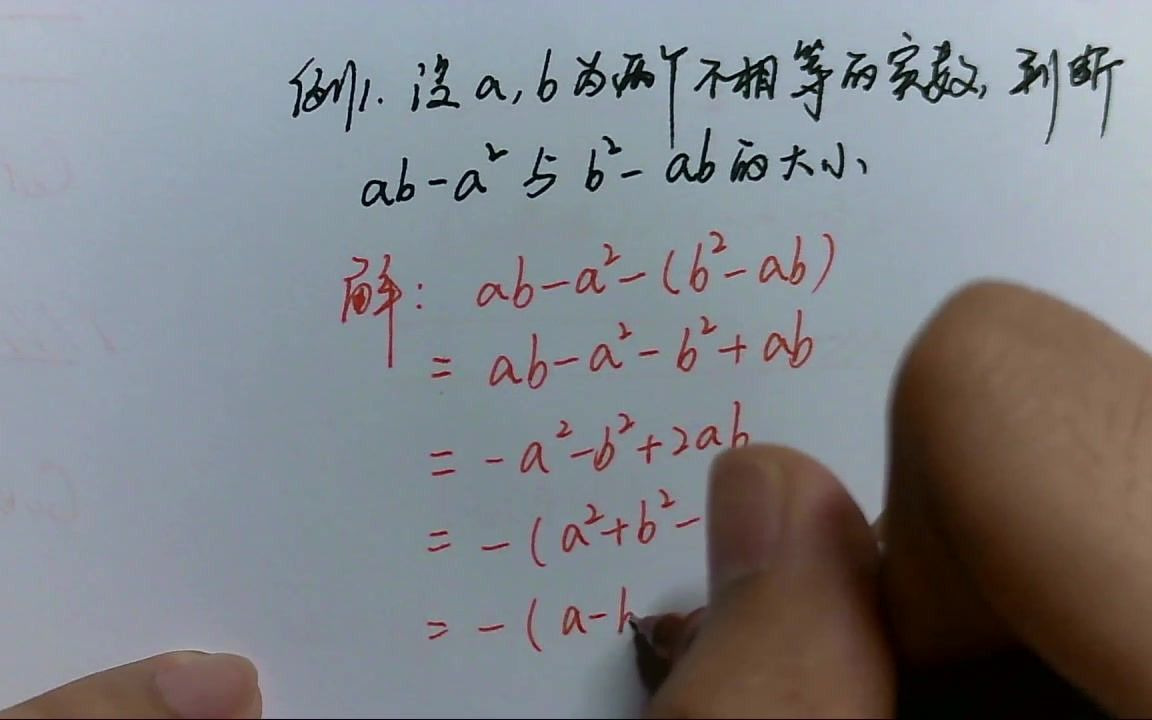 例1. 设 a, b 为两个不相等的实数, 判断
ab-a² 与 b²-ab 的大小、
解: ab-a²-(b²-ab)
= ab-a²-b²+ab
= -a²-b²+2ab
= -(a²+b²-
= -(a-b